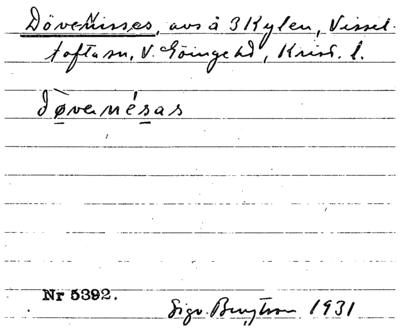 Dövenisses, avs å 3 Kylen, Vissel-
tofta sn, V. Göinge hd, Krist. l.
dövenésas
Nr 5392.
Sigv. 1931